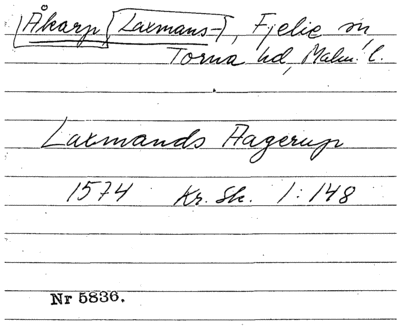 [Åkarp [Laxmans-], Fjelie sn,
Torna hd, Malm. l.
Laxmands Aagerup
1574 Kr. Sk. 1:148
Nr 5836.